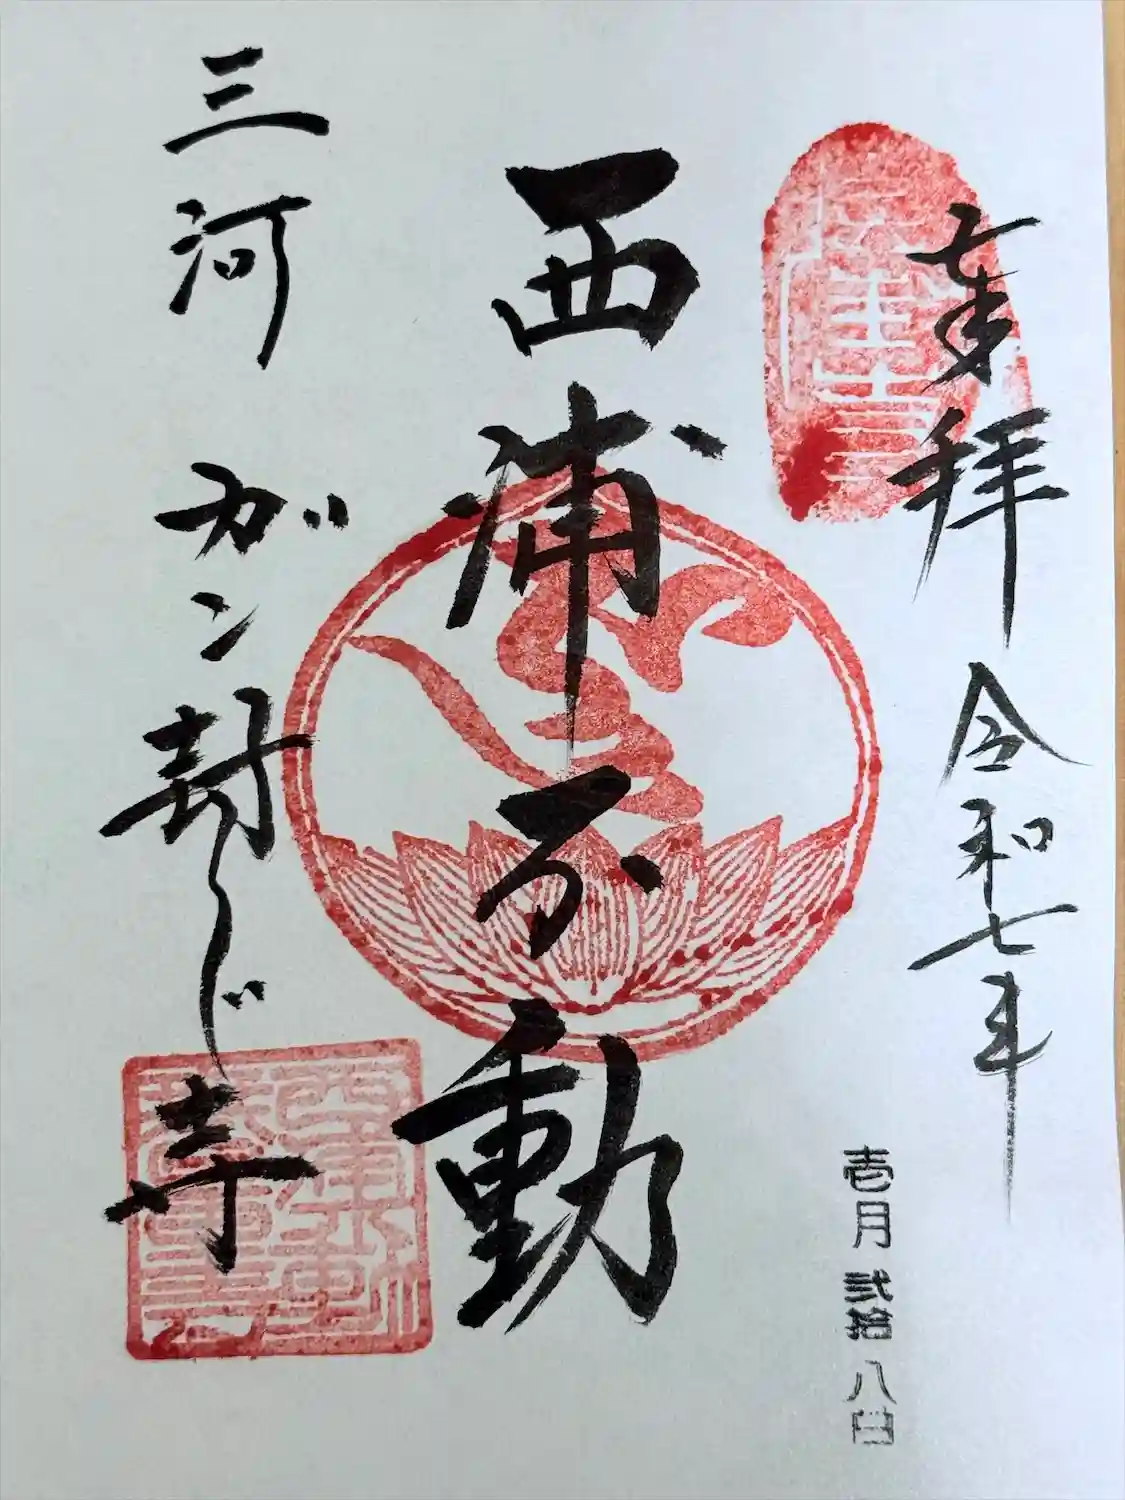 奉拝 令和七年
壱月 弐拾八日
西浦不動
三河 ガン封じ寺